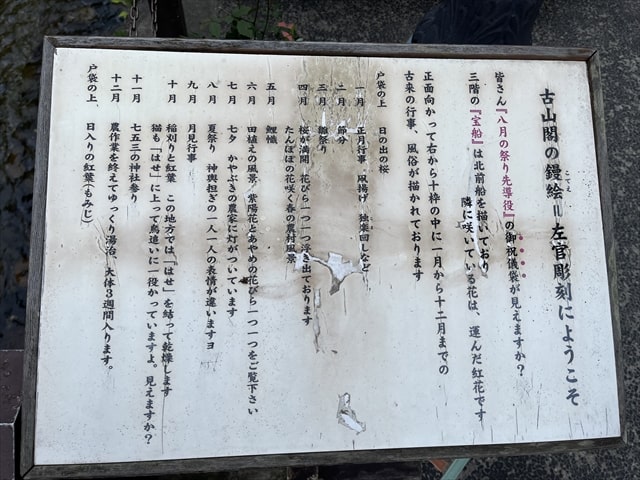 古山閣の鏝絵＝左官彫刻にようこそ
こてえ
皆さん『八月の祭り先導役』の御祝儀袋が見えますか？
三階の『宝船』は北前船を描いており
隣に咲いている花は、運んだ紅花です
正面向かって右から十枠の中に一月から十二月までの
古来の行事、風俗が描かれております
戸袋の上　日の出の桜
一月　正月行事　凧揚げ　独楽回しなど
二月　節分
三月　雛祭り
四月　桜が満開　花びら一つ一つ浮き出ております
たんぽぽの花咲く春の農村風景
五月　鯉幟
六月　田植えの風景　紫陽花とあやめの花びら一つ一つをご覧下さい
七月　七夕　かやぶきの農家に灯がついています
八月　夏祭り　神輿担ぎの一人一人の表情が違いますヨ
九月　月見行事
十月　稲刈りと紅葉　この地方では『はせ』を結って乾燥します
猫も「はせ」に上って鳥追いに一役かっていますよ。見えますか？
十一月　七五三の神社参り
十二月　農作業を終えてゆっくり湯治、大体３週間入ります。
戸袋の上、日入りの紅葉(もみじ)